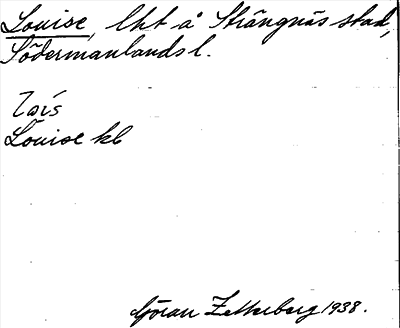 Louise, lht å Strängnäs stad,
Södermanlands l.
Lois
Louise kb
Göran Zetterberg 1938.